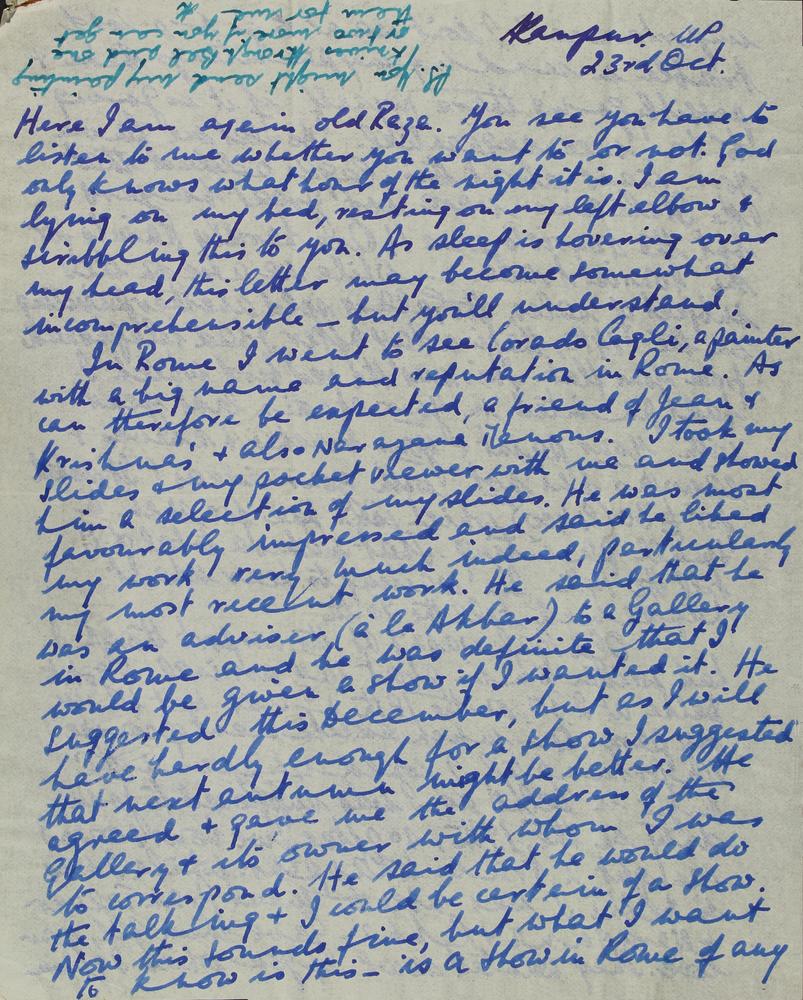 Kanpur. UP
23rd Oct.
Here I am again old Raza. You see you have to
listen to me whether you want to or not. God
only knows what hour of the night it is. I am
lying on my bed, resting on my left elbow &
scribbling this to you. As sleep is hovering over
my head, this letter may become somewhat
incomprehensible – but you'll understand.
In Rome I went to see Corado Cagli, a painter
with a big name and reputation in Rome. As
can therefore be expected, a friend of Jean &
Krishna's & also Narayana Menons. I took my
slides & my pocket viewer with me and showed
him a selection of my slides. He was most
favourably impressed and said he liked
my work very much indeed, particularly
my most recent work. He said that he
was an adviser (à la Akbar) to a Gallery
in Rome and he was definite that I
would be given a show if I wanted it. He
suggested this December, but as I will
have hardly enough for a show I suggested
that next autumn might be better. He
agreed & gave me the address of the
Gallery & its owner with whom I was
to correspond. He said that he would do
the talking & I could be certain of a show.
Now this sounds fine, but what I want
to know is this – is a show in Rome of any
P.S. You might send my painting
knives through Bal and one
or two more if you can get
them for me